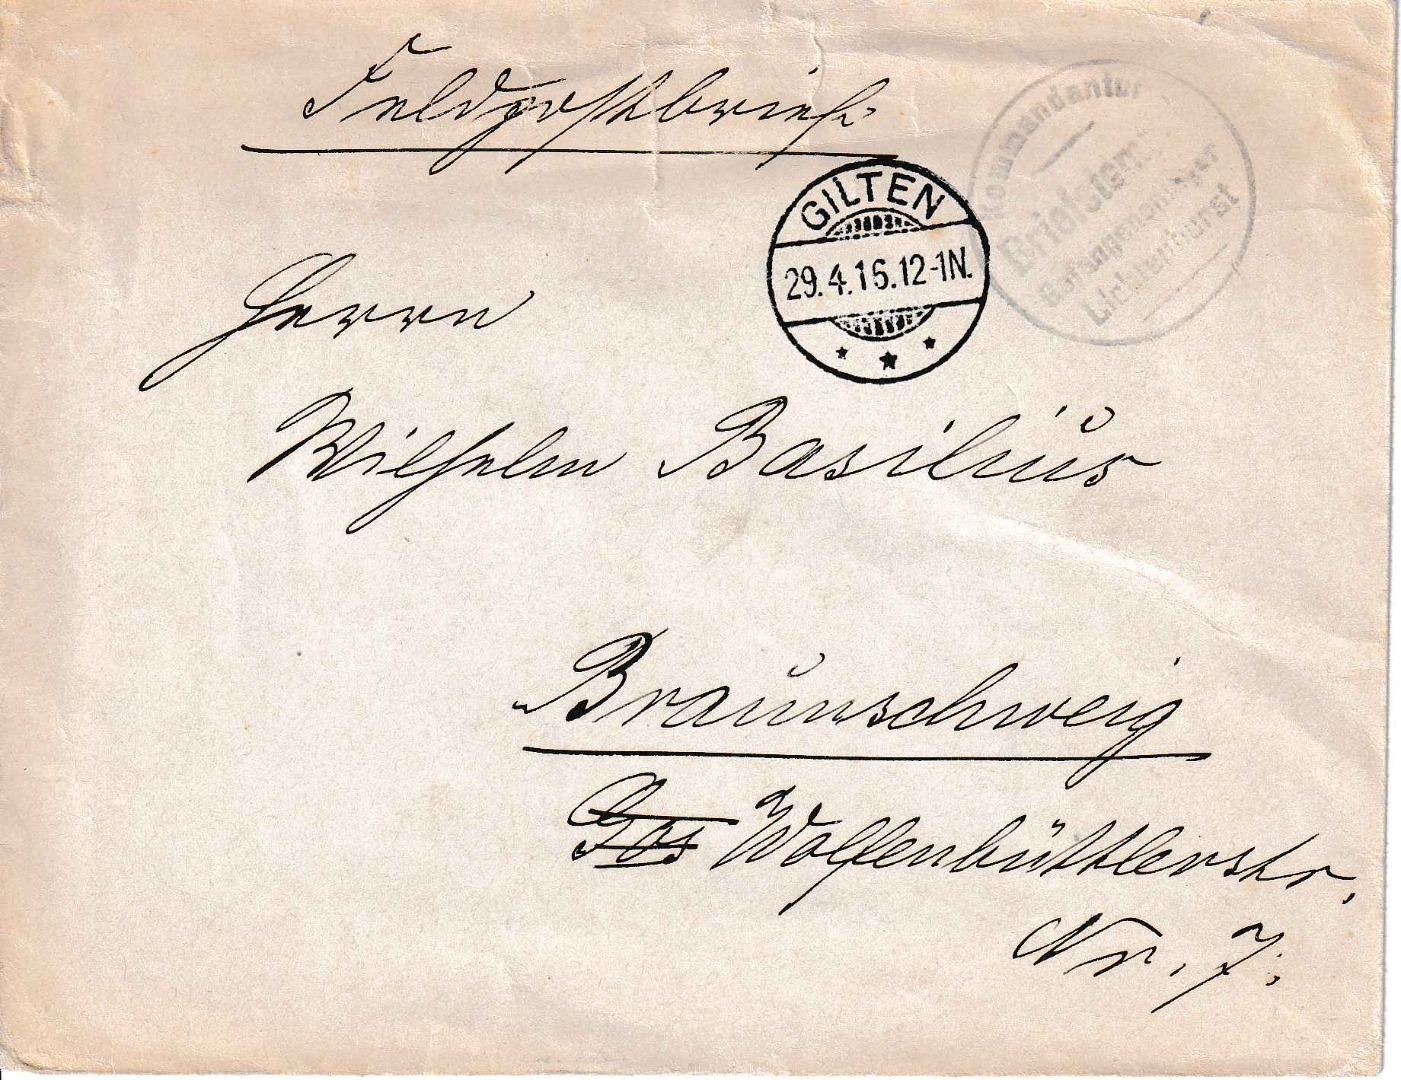 Feldpostbrief.
GILTEN
29.4.16.12-1N.
Kommandantur
Briefstempel
Gefangenenlager
Lichtenhorst
Herrn
Wilhelm Basilius
Braunschweig
Gos Wolfenbüttlerstr.
Nr. 7.